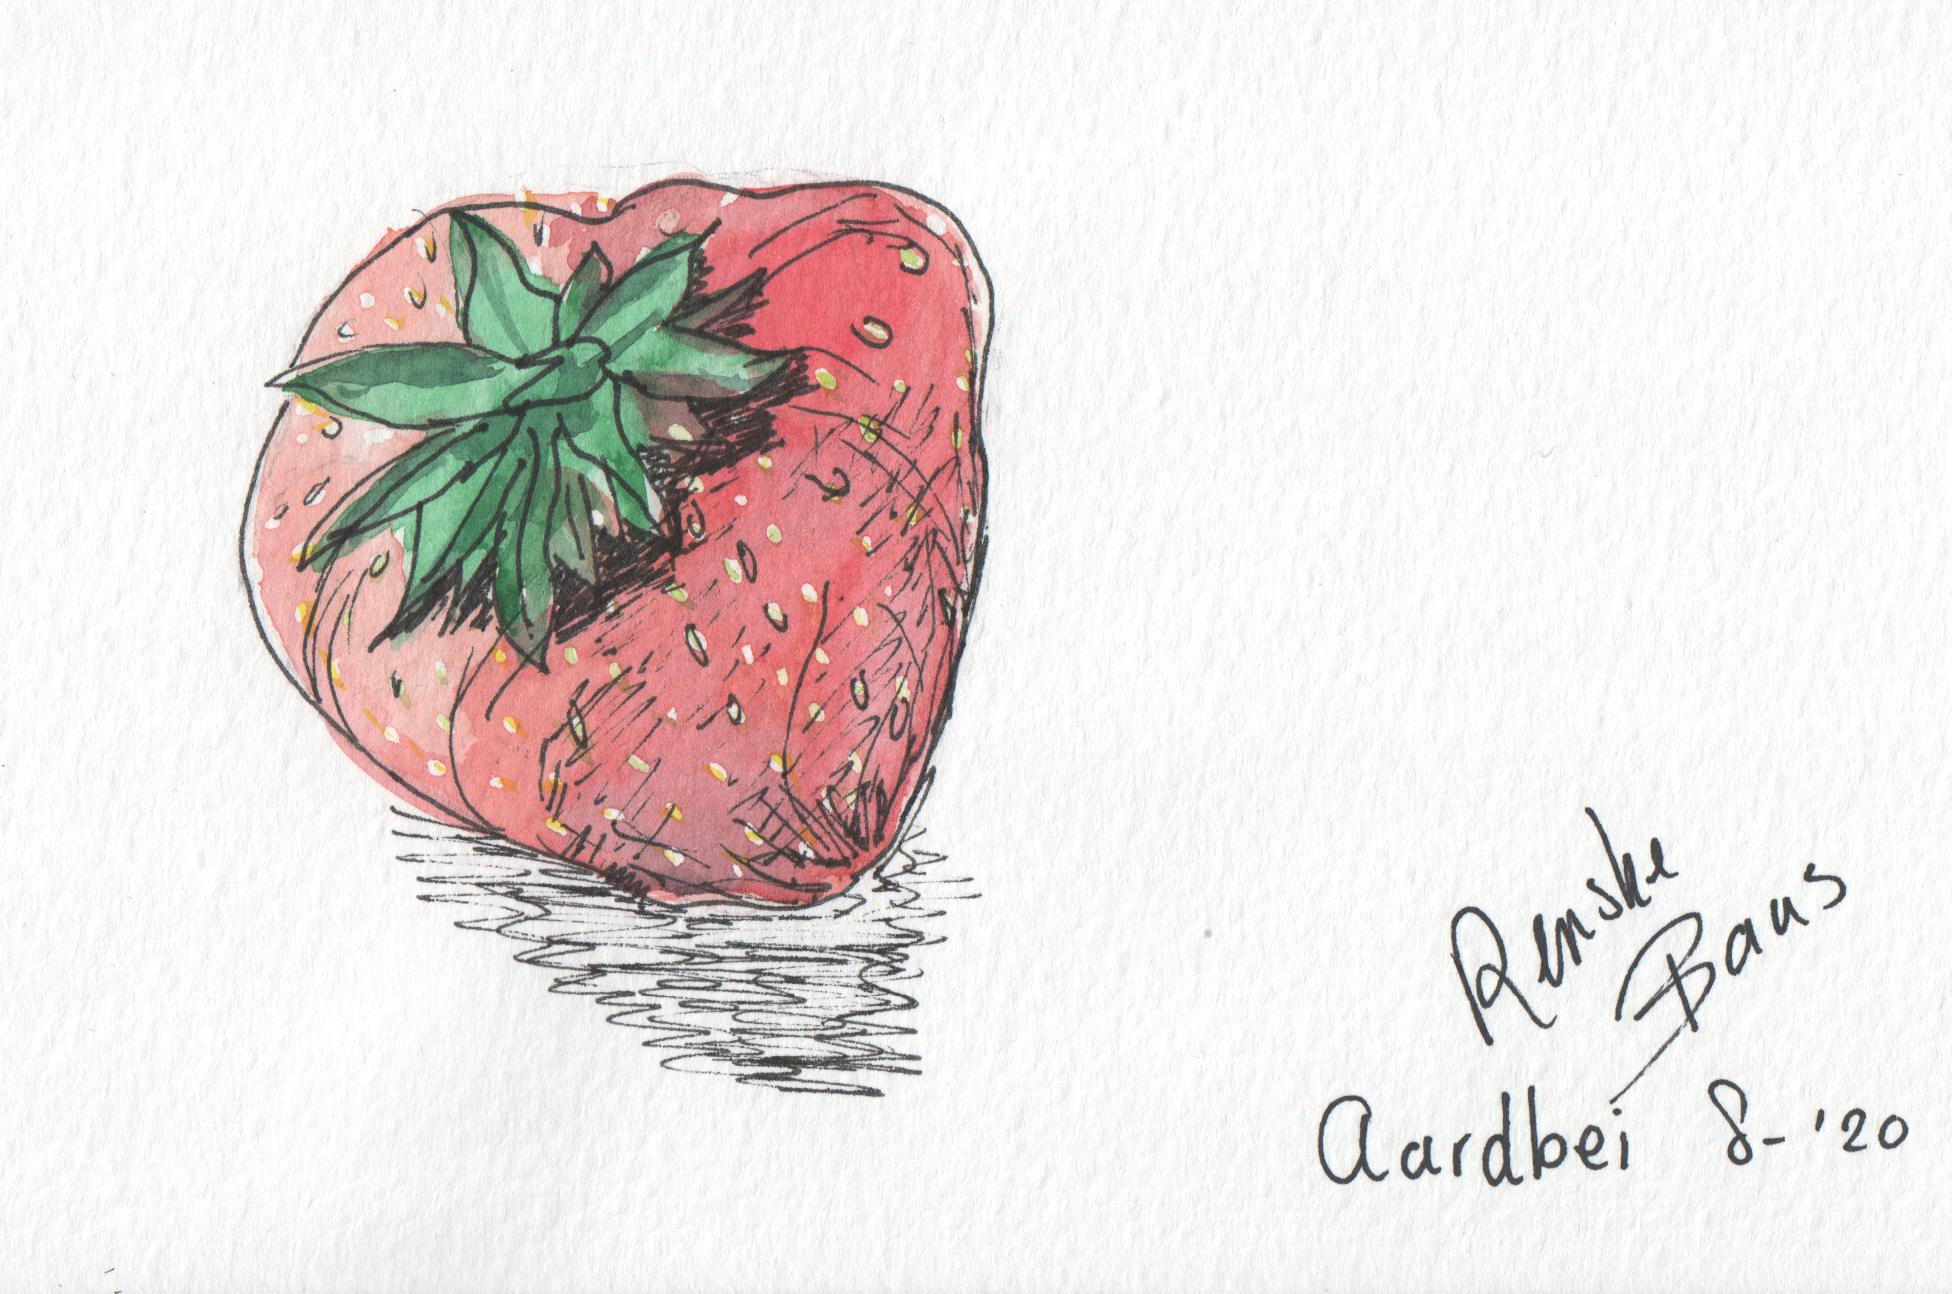 Renske
Baus
Aardbei 8-'20